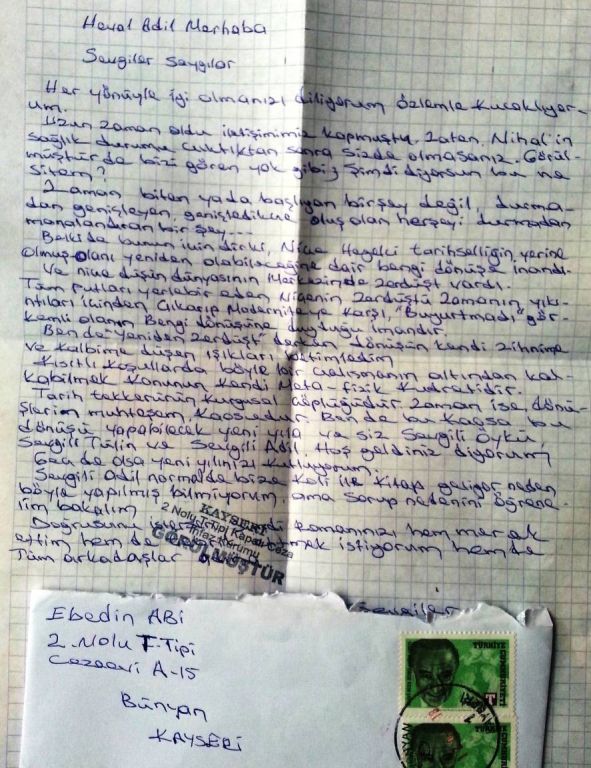 Heval Adil Merhaba
Sevgiler Saygılar
Her yönüyle iyi olmanızı diliyorum özlemle kucaklıyor-
um.
Uzun zaman oldu iletişimimiz kopmuştu. Zaten Nihal'in
sağlık durumu çıktıktan sonra sizde olmasanız. Görül-
müştür de bizi gören yok gibi; şimdi diyorsun bu ne
sitem?
Zaman biten yada başlıyan birşey değil, durma-
dan genişleyen, genişledikçe oluş olan herşeyi durmadan
manalandıran bir şey...
Belki de bunun için dir ki, Niçe Hegelci tarihselliğin yerine
olmuş olanı yeniden olabileceğine dair bengi dönüşe inandı.
Ve niçe düşün dünyasının merkezinde zerdüşt vardı.
Tüm putları yerlebir eden Niçenin Zerdüştü zamanın yıkı-
ntıları içinden çıkarıp Moderniteye karşı, "Buyurtmadı" gör-
kemli olanın Bengi dönüşüne duyduğu imandır.
Ben de "yeniden zerdüşt" derken dönüşün kendi zihnime
ve kalbime düşen ışıkları betimledim
Kısıtlı koşullarda böyle bir çalışmanın altından kal-
kabilmek konunun kendi Meta-fizik kudretidir.
Tarih tekkerrürün kurgusal çöplüğüdür zaman ise, dönü-
şlerin muhteşem kaosudur. Ben de bu kaosa bu
dönüşü yapabilecek yeni yıla ve siz Sevgili Öykü,
Sevgili Tülin ve Sevgili Adil. Hoş geldiniz diyorum
Geç de olsa yeni yılınızı kutluyorum.
Sevgili Adil normalde bize koli ile kitap geliyor neden
böyle yapılmış bilmiyorum, ama sorup nedenini öğrene-
lim bakalım
Doğrusunu romanınızı hem merak
ettim hem de istiyorum hem de
Tüm arkadaşlar
Sevgiler
KAYSERİ
2 Nolu T Tipi Kapalı Ceza
İnfaz Kurumu
GÖRÜLMÜŞTÜR
Ebedin ABİ
2. Nolu T. Tipi
Cezaevi A-15
Bünyan
KAYSERİ
TÜRKİYE
CUMHURİYETİ